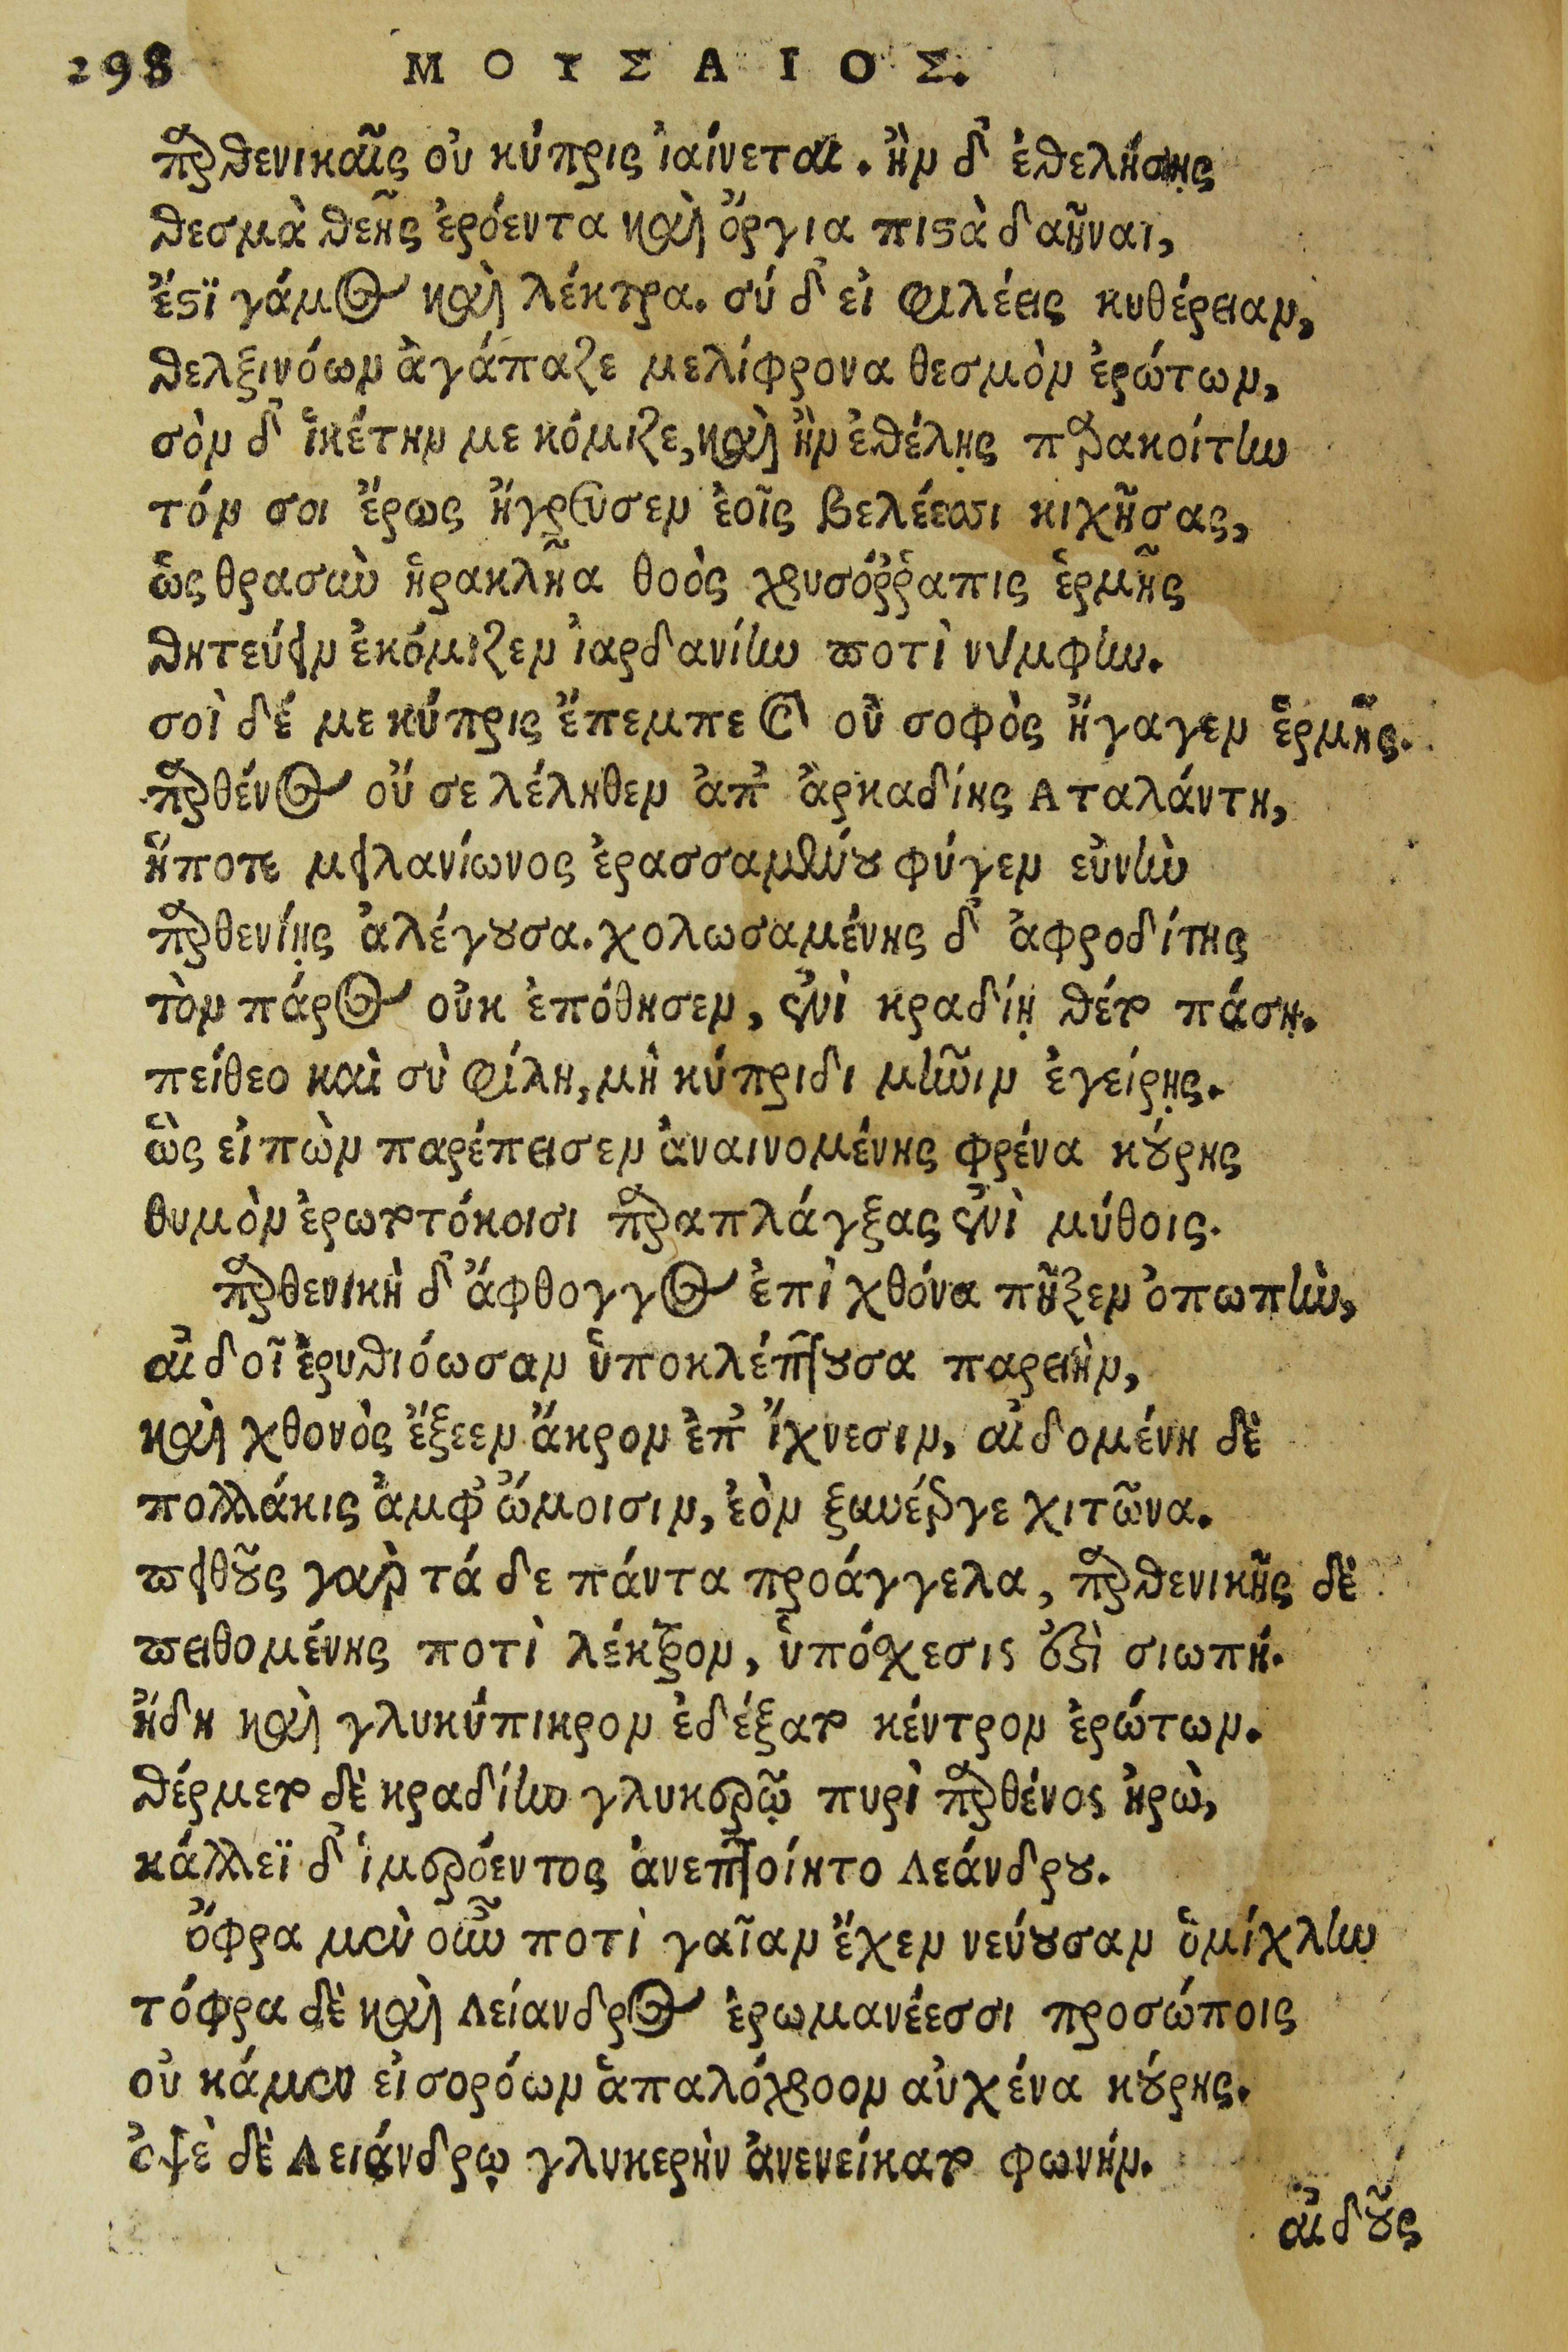 298 ΜΟΥΣΑΙΟΣ.
παρθενικαῖς οὐ κύπρις ἰαίνεται. ἢν δ' ἐθελήσῃς
θεσμὰ θεῆς ἐρόεντα καὶ ὄργια πιστὰ δαῆναι,
ἔστι γάμος καὶ λέκτρα. σύ δ' εἰ φιλέεις κυθέρειαν,
θελξινόων ἀγάπαζε μελίφρονα θεσμὸν ἐρώτων,
σὸν δ' ἱκέτην με κόμιζε, καὶ ἢν ἐθέλῃς παρακοίτην
τόν σοι ἔρως ἤγρευσεν ἑοῖς βελέεσσι κιχῆσας,
ὥς θρασὺν ἡρακλῆα θοὸς χρυσόῤῥαπις ἑρμῆς
θητεύειν ἐκόμιζεν ἰαρδανίην ποτὶ νύμφην.
σοὶ δέ με κύπρις ἔπεμπε καὶ οὐ σοφὸς ἤγαγεν ἑρμῆς.
παρθένος οὔ σε λέληθεν ἀπ' ἀρκαδίης Αταλάντη,
ἥποτε μειλανίωνος ἐρασσαμένου φύγεν εὐνὴν
παρθενίῃς ἀλέγουσα. χολωσαμένης δ' ἀφροδίτης
τὸν πάρος οὐκ ἐπόθησεν, ἐνὶ κραδίῃ θέτο πάσῃ.
πείθεο καὶ σὺ φίλη, μὴ κύπριδι μῆνιν ἐγείρῃς.
ὣς εἰπὼν παρέπεισεν ἀναινομένης φρένα κούρης
θυμὸν ἐρωτοτόκοισι παραπλάγξας ἐνὶ μύθοις.
παρθενικὴ δ' ἄφθογγος ἐπὶ χθόνα πῆξεν ὀπωπὴν,
αἰδοῖ ἐρυθιόωσαν ὑποκλέπτουσα παρειὴν,
καὶ χθονὸς ἔξεεν ἄκρον ἐπ' ἴχνεσιν, αἰδομένη δὲ
πολλάκις ἀμφ' ὤμοισιν, ἑὸν ξυνέεργε χιτῶνα.
πειθοῦς γὰρ τά δε πάντα προάγγελα, παρθενικῆς δὲ
πειθομένης ποτὶ λέκτρον, ὑπόσχεσις ἐστὶ σιωπή.
ἤδη καὶ γλυκύπικρον ἐδέξατο κέντρον ἐρώτων.
θέρμετο δὲ κραδίην γλυκερῷ πυρὶ παρθένος ἡρὼ,
κάλλεϊ δ' ἱμερόεντος ἀνεπτοίητο Λεάνδρου.
ὄφρα μὲν οὖν ποτὶ γαῖαν ἔχεν νεύουσαν ὁμίχλην
τόφρα δὲ καὶ Λείανδρος ἐρωμανέεσσι προσώποις
οὐ κάμεν εἰσορόων ἁπαλόχροον αὐχένα κούρης.
ὀψὲ δὲ Λειάνδρῳ γλυκερὴν ἀνενείκατο φωνήν.
αἰδοῦς